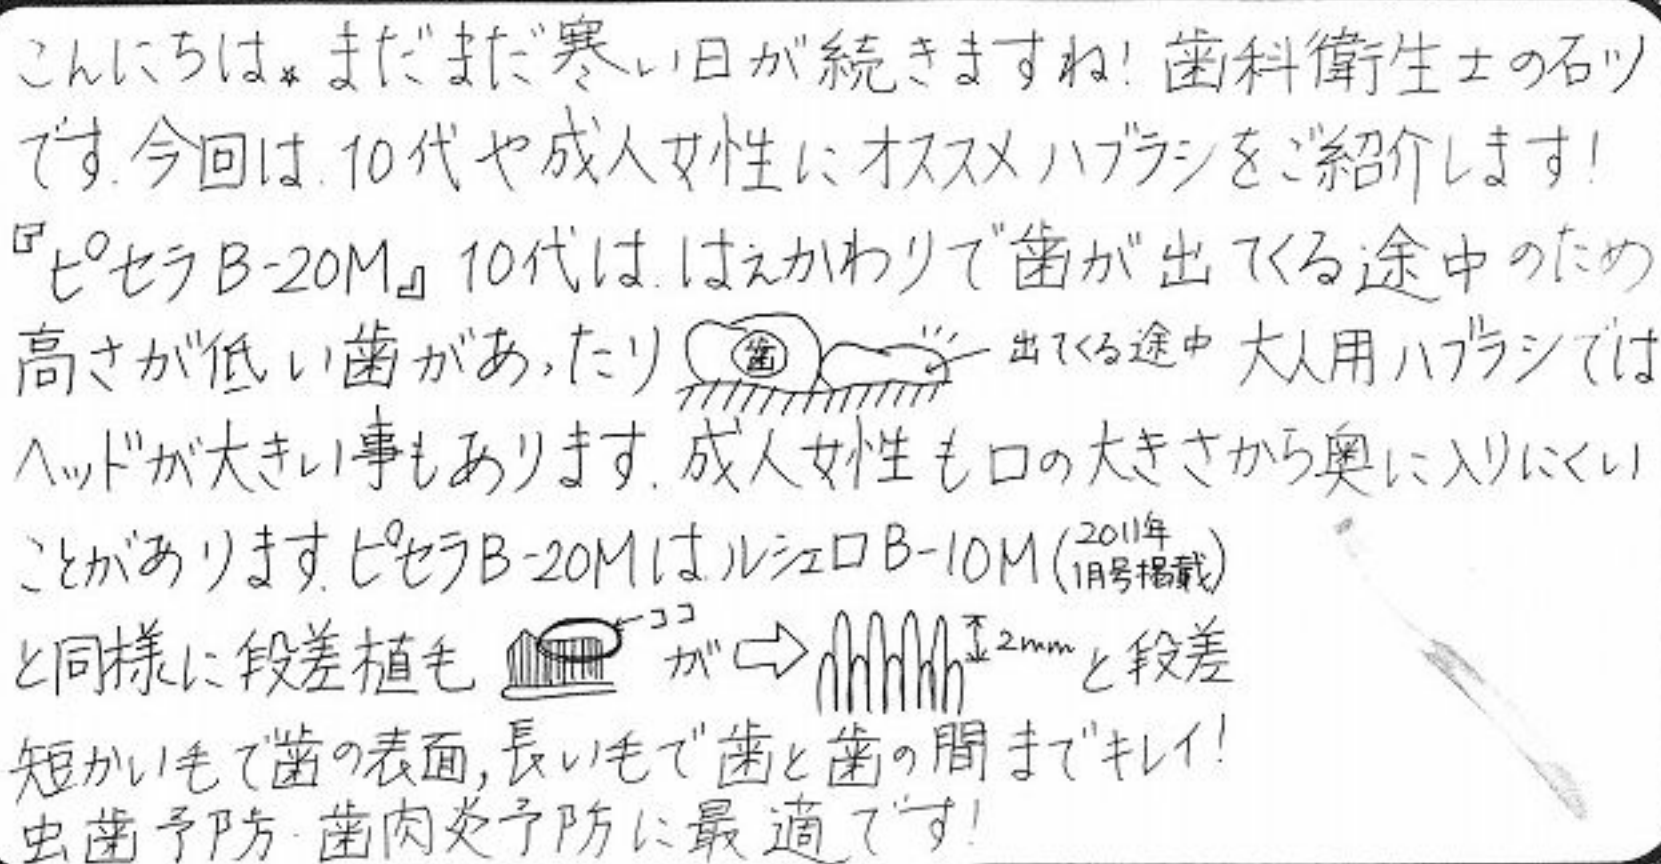 こんにちは。まだまだ寒い日が続きますね!歯科衛生士の石ツ
です.今回は.10代や成人女性にオススメハブラシをご紹介します!
『ピセラB-20M』10代は.はえかわりで歯が出てくる途中のため
高さが低い歯があったり 歯 出てくる途中 大人用ハブラシでは
ヘッドが大きい事もあります.成人女性も口の大きさから奥に入りにくい
ことがあります.ピセラB-20Mは.ルシェロB-10M(2011年1月号掲載)
と同様に段差植毛 ココ が 2mmと段差
短かい毛で歯の表面,長い毛で歯と歯の間までキレイ!
虫歯予防・歯肉炎予防に最適です!